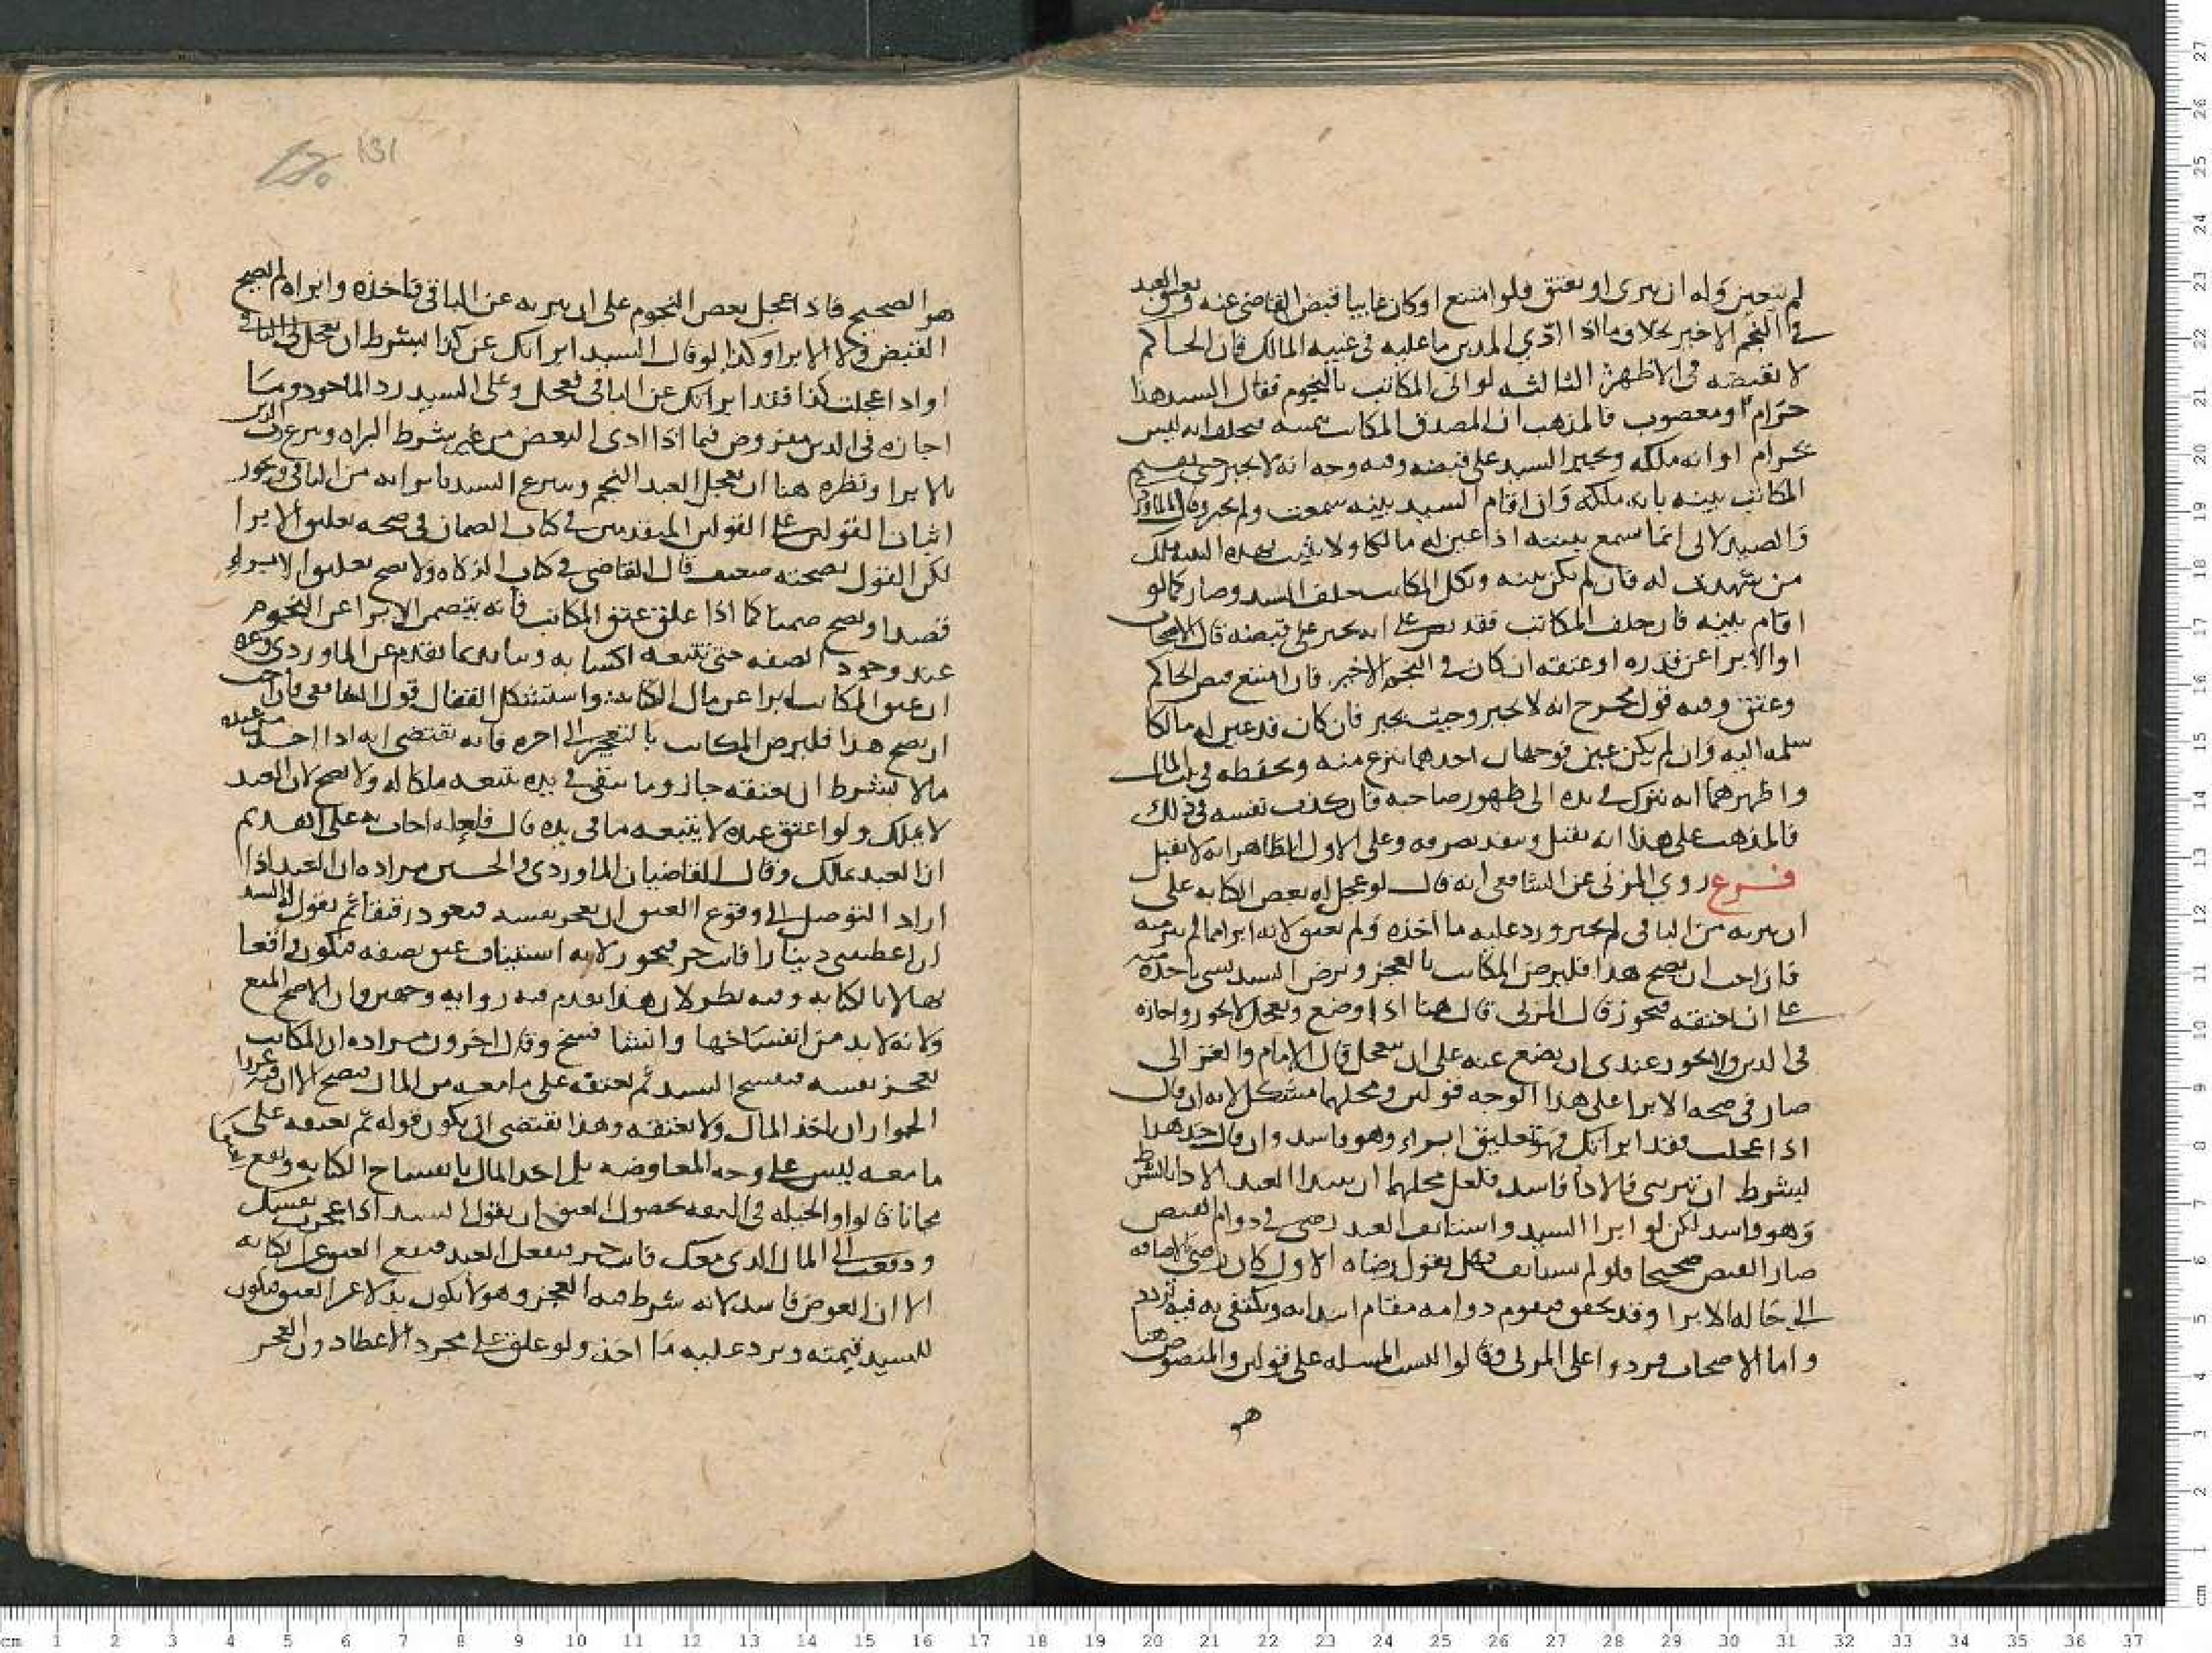 لم يتعين وله ان يبرى او يعتق فلو امتنع او كان غايبا قبض القاضي عنه وعتق العبد
في النجم الاخير بخلاف ما اذا ادي المدين ما عليه في غيبه المالك فان الحاكم
لا يقبضه في الاظهر الثالثه لو اتى المكاتب بالنجوم فقال السيد هذا
حرام او مغصوب فالمذهب ان المصدق المكاتب بيمينه فيحلف انه ليس
بحرام او انه ملكه ويجبر السيد على قبضه وفيه وجه انه لا يجبر حتى يقيم
المكاتب بينه بانه ملكه وان اقام السيد بينه سمعت ولم يجبر وقال الماوردي
والصيدلاني انما تسمع بينته اذا عين له مالكا ولا يثبت بهذه البينه ملك
من شهدت له فان لم يكن بينه ونكل المكاتب حلف السيد وصار كما لو
اقام بينه فان حلف المكاتب فقد نص على انه يجبر على قبضه قال الاصحاب
او الابرا عن قدره او عتقه ان كان في النجم الاخير فان امتنع قبض الحاكم
وعتق وفيه قول مخرج انه لا يجبر وحيث يجبر فان كان قد عين له مالكا
سلمه اليه وان لم يكن عين فوجهان احدهما ينزع منه ويحفظه في بيت المال
واظهرهما انه يترك في يده الى ظهور صاحبه فان كذب نفسه في ذلك
فالمذهب على هذا انه يقبل وينفذ تصرفه وعلى الاول الظاهر انه لا يقبل
فرع روي المزني عن الشافعي انه قال لو عجل له بعض الكتابه على
ان يبريه من الباقي لم يجز ورد عليه ما اخذه ولم يعتق لانه ابراه مما لم يبر منه
فان احب ان يصح هذا فليرض المكاتب بالعجز ويرض السيد بشي ياخذه منه
على ان يعتقه فيجوز قال المزني قال هنا اذا وضع وتعجل لا يجوز واجازه
في الدين ولا يجوز عندي ان يضع عنه على ان يتعجل قال الامام والغزالي
صار في صحه الابرا على هذا الوجه قولين ومحلهما مشكل لانه ان قال
اذا عجلت فقد ابراتك فهو تعليق ابراء وهو فاسد وان قال خذ هذا
بشرط ان تبريني فالادا فاسد فلعل محلهما ان يبتدا العبد الادا بالشرط
وهو فاسد لكن لو ابرا السيد واستانف العبد رضى في دوام القبض
صار القبض صحيحا فلو لم يستانف فهل يقول رضاه الاول كان رضى بالاضافه
الى حاله الابرا وقد تحقق فيقوم دوامه مقام ابتدايه ويكتفى به فيه تردد
واما الاصحاب فردوا على المزني وقالوا ليست المسله على قولين والمنصوص هنا
هو
هو الصحيح فاذا عجل بعض النجوم على ان يبريه عن الباقي فاخذه وابراه لم يصح
القبض ولا الابرا وكذا لو قال السيد ابراتك عن كذا بشرط ان تعجل لي الباقي
او اذا عجلت كذا فقد ابراتك عن الباقي فعجل وعلى السيد رد الماخوذ وما
اجازه في الدين مفروض فيما اذا ادى البعض من غير شرط البراه وتبرع رب الدين
بالابرا ونظيره هنا ان يعجل العبد النجم ويتبرع السيد بابرايه من الباقي ويجوز
اثبات القولين على القولين المتقدمين في كتاب الضمان في صحه تعليق الابرا
لكن القول بصحته ضعيف قال القاضي في كتاب الزكاه ولا يصح تعليق الابراء
قصدا ويصح ضمنا كما اذا علق عتق المكاتب فانه يتضمن الابرا عن النجوم
عند وجود الصفه حتى تتبعه اكسابه
ان عتق المكاتب ابرا عن مال الكتابه واستشكل القفال قول الشافعي فان احب
ان يصح هذا فليرض المكاتب بالتعجيز الى اخره فانه يقتضي انه اذا اخذ من عبده
مالا بشرط ان يعتقه جاز وما يبقى في يده يتبعه ملكا له ولا يصح لان العبد
لا يملك ولو اعتق عبده لا يتبعه ما في يده قال فلعله اجاب به على القديم
ان العبد يملك وقال القاضيان الماوردي والحسين مراده ان العبد اذا
اراد التوصل الى وقوع العتق ان يعجز نفسه فيعود رقيقا ثم يقول له السيد
ان اعطيتني دينارا فانت حر فيجوز لانه استيناف عتق بصفه فيكون واقعا
بها لا بالكتابه وفيه نظر لان هذا تقدم فيه روايه وجهين وان الاصح المنع
ولانه لا بد من انفساخها وانشا فسخ وقال اخرون مراده ان المكاتب
يعجز نفسه فيفسخ السيد ثم يعتقه على ما معه من المال فيصح الا ان فيه غررا
لجواز ان ياخذ المال ولا يعتقه وهذا يقتضي ان يكون قوله ثم يعتقه على
ما معه ليس على وجه المعاوضه بل اخذ المال بانفساخ الكتابه ويقع
مجانا قالوا والحيله في الثقه بحصول العتق ان يقول السيد اذا عجزت نفسك
ودفعت الي المال الذي معك فانت حر فيفعل العبد فيقع العتق عن الكتابه
الا ان العوض فاسد لانه شرط فيه العجز وهو لا يكون بدلا عن العتق فيكون
للسيد قيمته ويرد عليه ما اخذ ولو علق على مجرد الاعطا دون العجز
131